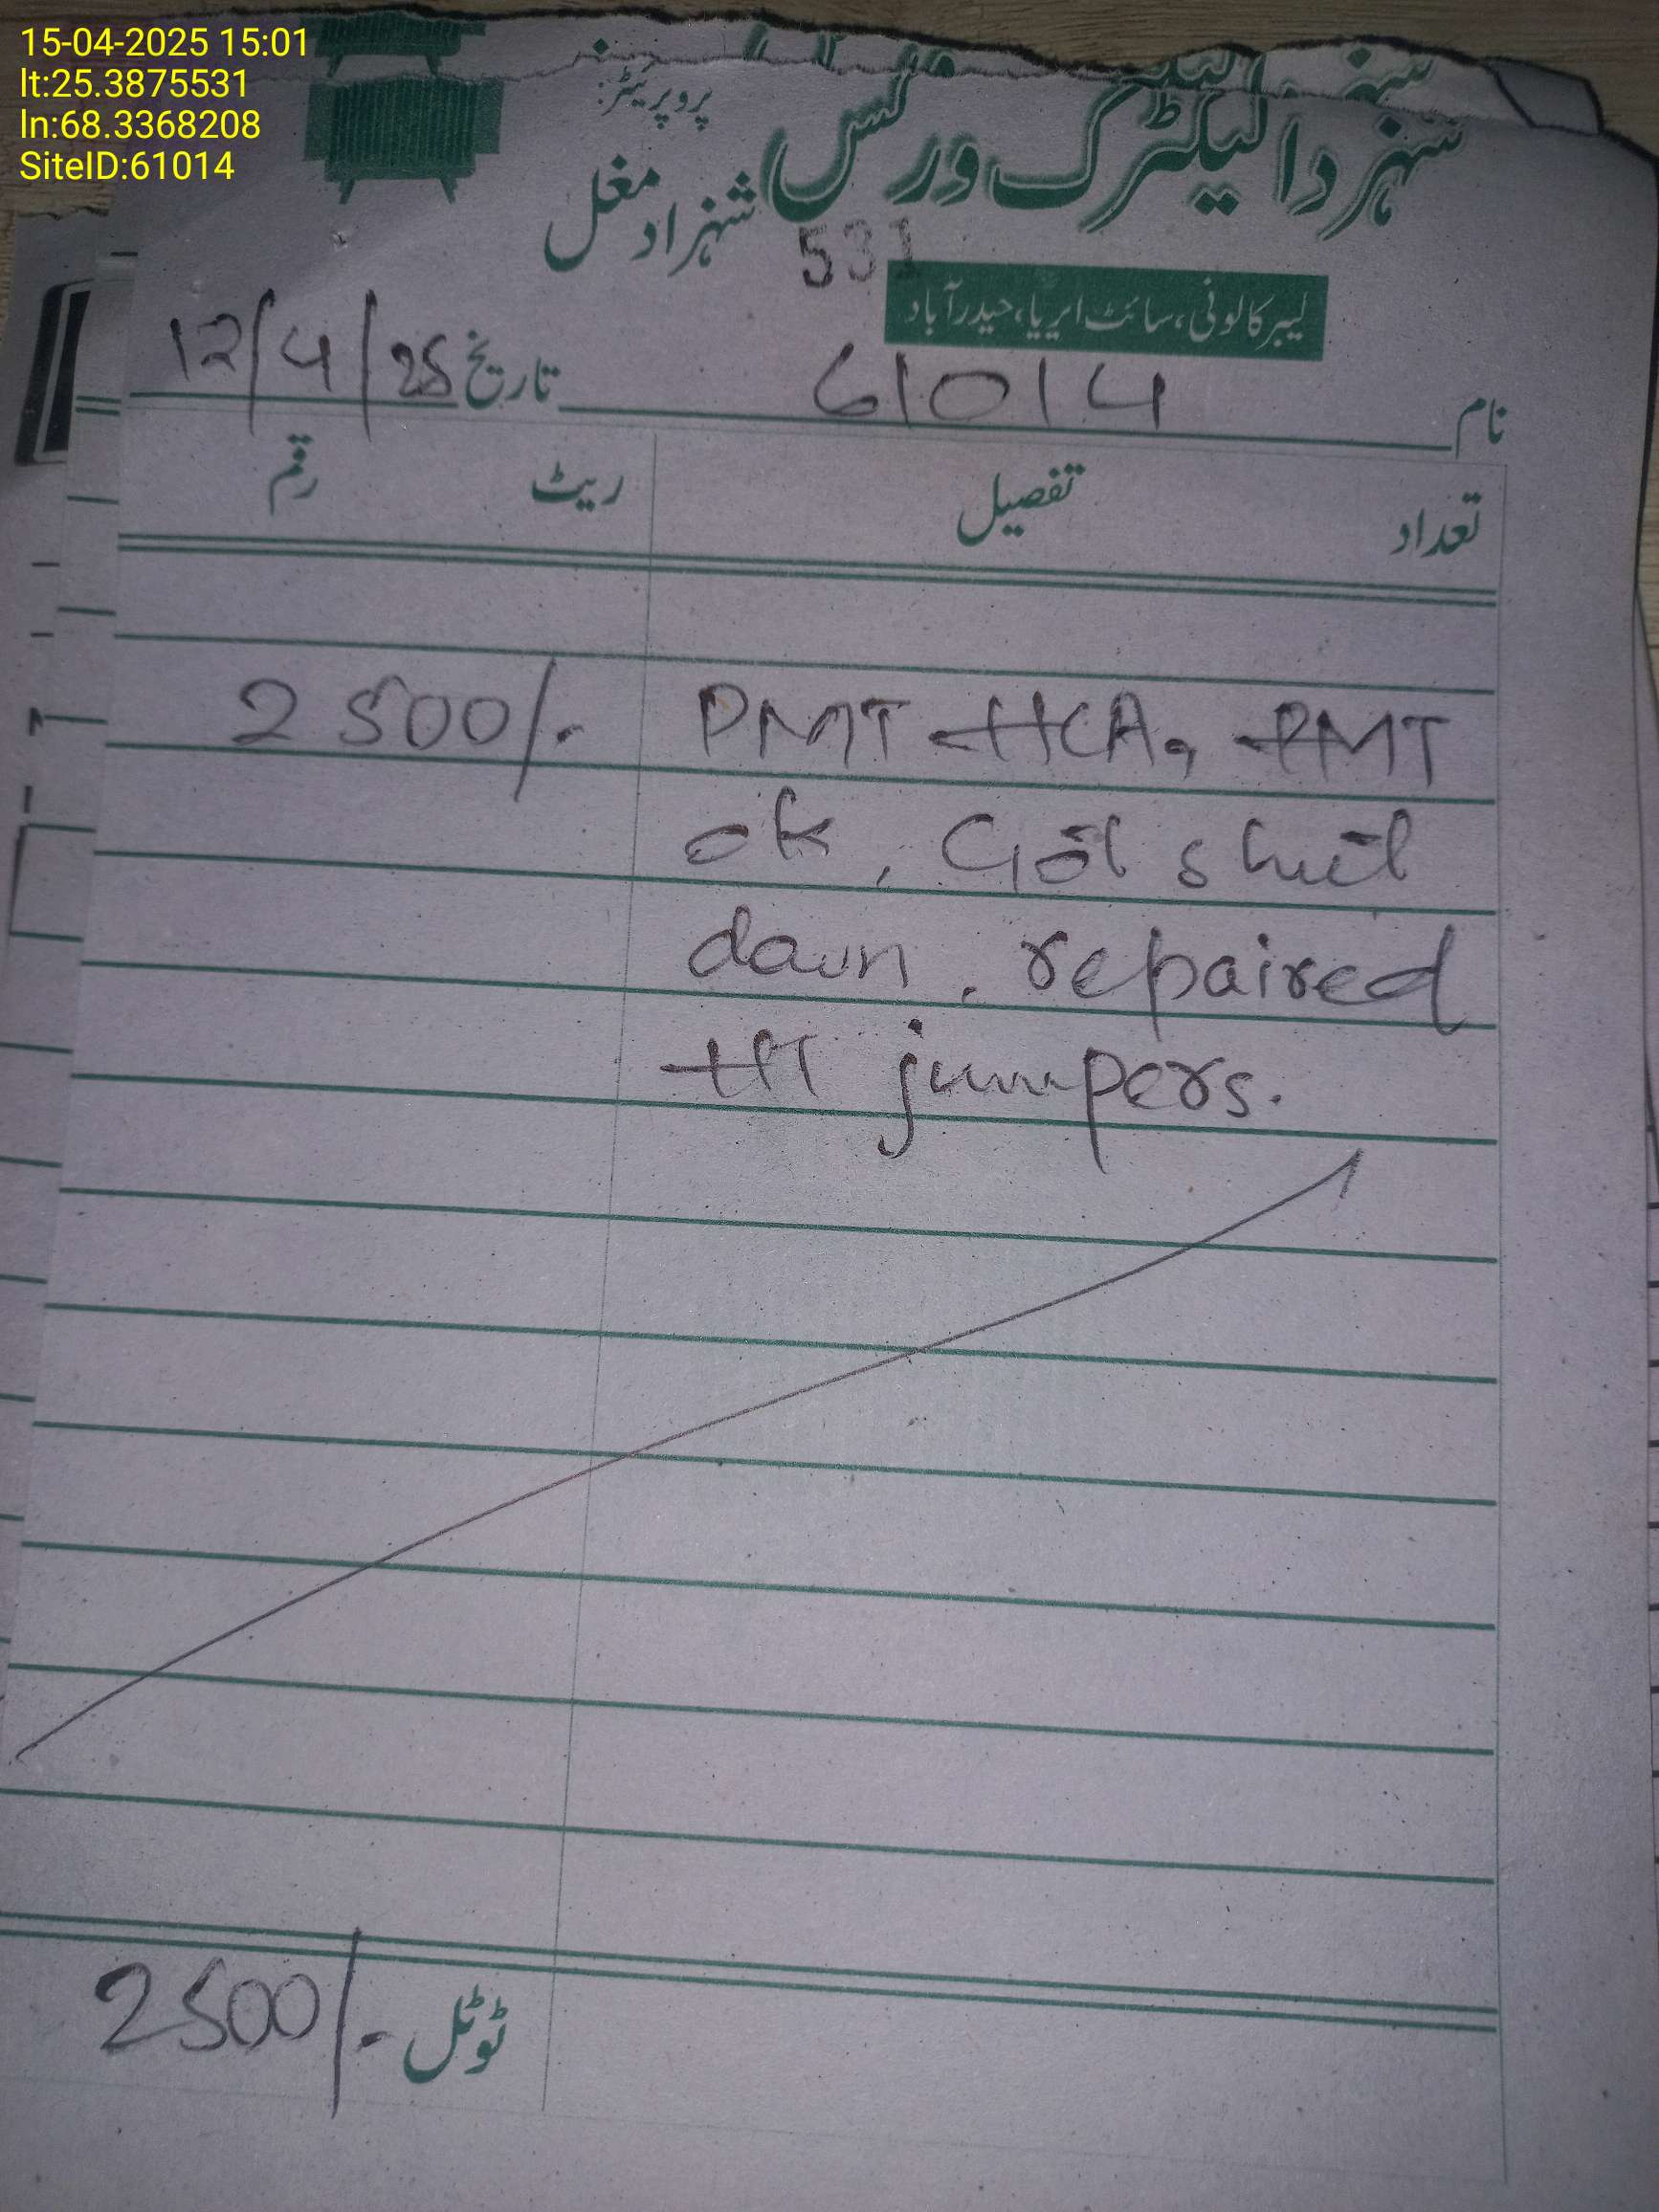 15-04-2025 15:01
lt:25.3875531
ln:68.3368208
SiteID:61014
الیکٹرک ورکس
پروپریٹر:
شہزاد مغل
531
لیبر کالونی، سائٹ ایریا، حیدرآباد
نام 61014 تاریخ 12/4/25
تعداد تفصیل ریٹ رقم
PMT HCA, PMT 2500/-
ok, Got shut
down. repaired
HT jumpers.
ٹوٹل 2500/-